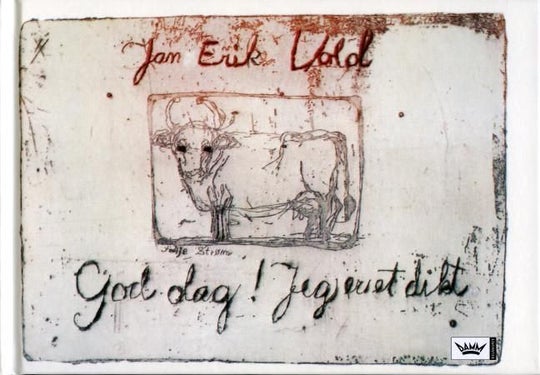 Jan Erik Vold
Tonje Strøm
God dag! Jeg er et dikt
DAMM